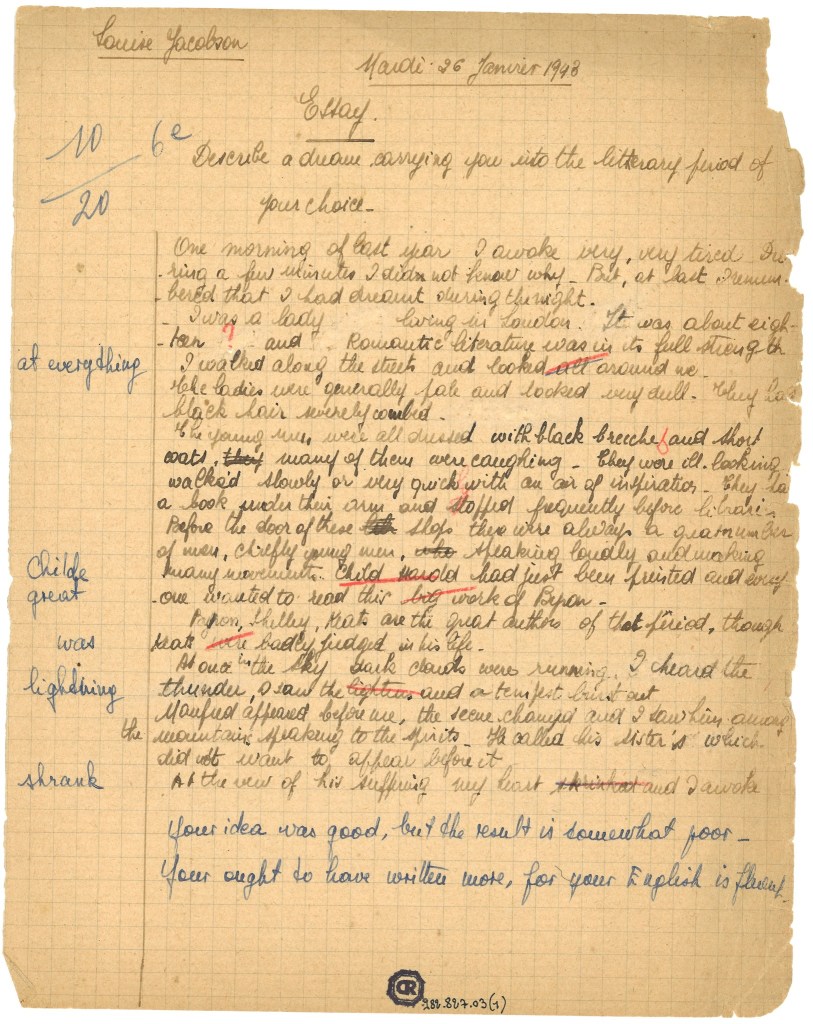 Louise Jacobson
Mardi 26 Janvier 1943
Essay.
10 6e
20
Describe a dream carrying you into the litterary period of
your choice_
One morning of last year I awoke very, very tired Du-
-ring a few minutes I didn not know why_ But, at last I remem-
-bered that I had dreamt during the night.
_ I was a lady living in London. It was about eigh-
-teen ? and . Romantic literature was in its full strength
at everything
I walked along the streets and looked all around me_
The ladies were generally pale and looked very dull_ They had
black hair severely combed_
The young men were all dressed with black breeches and short
coats, they many of them were caughing_ They were ill-looking
walked slowly or very quick with an air of inspiration_ They ha
a book under their arm and stopped frequently before librari
Before the door of these shops they were always a great number
of men, chiefly young men, who speaking loudly and making
Childe
many movements. Child Harold had just been printed and every
great
-one wanted to read this big work of Byron_
Byron, Shelley, Keats are the great authors of that period, though
was
Keats were badly judged in his life_
At once in the sky dark clouds were running. I heard the
lightning
thunder, I saw the lightens and a tempest burst out
Manfred appeared before me, the scene changed and I saw him among
the mountains speaking to the spirits_ He called his sister's which
did not want to appear before it
shrank
At the view of his suffering my heart shrinked and I awoke
Your idea was good, but the result is somewhat poor_
Your ought to have written more, for your English is fluent_
CR
988.827.03(1)